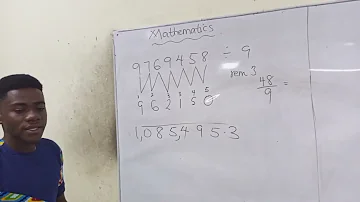 Mathematics
9769458 ÷ 9
rem 3
48/9 =
962150
1,085,495.3